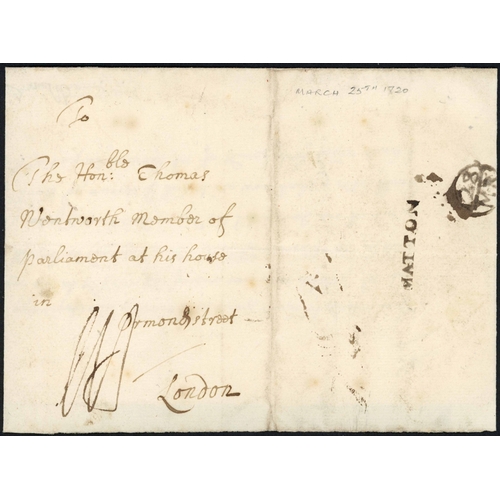 To
The Hon:ble Thomas
Wentworth Member of
parliament at his house
in Ormond street
London
MARCH 25TH 1720
MATTON